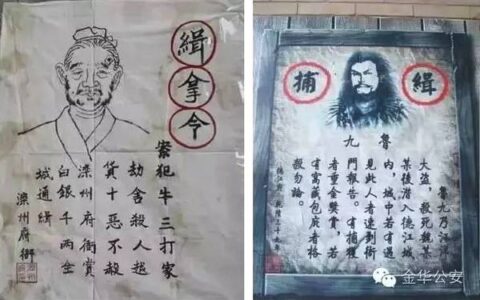 緝拿令
案犯牛三打家
劫舍殺人越
貨十惡不赦
滦州府衙賞
白銀千兩全
城通緝
滦州府衙
緝捕
魯九
魯九乃江洋
大盜，殺死魏某
某後潛入德江城
內，城中若有遇
見此人者速到衙
門報告。有捕獲
者重金獎賞，若
有窩藏包庇者格
殺勿論。
金华公安